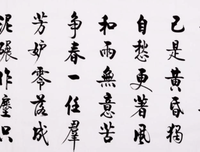 已是黄昏獨
自愁更著風
和雨無意苦
争春一任羣
芳妒零落成
泥碾作塵只